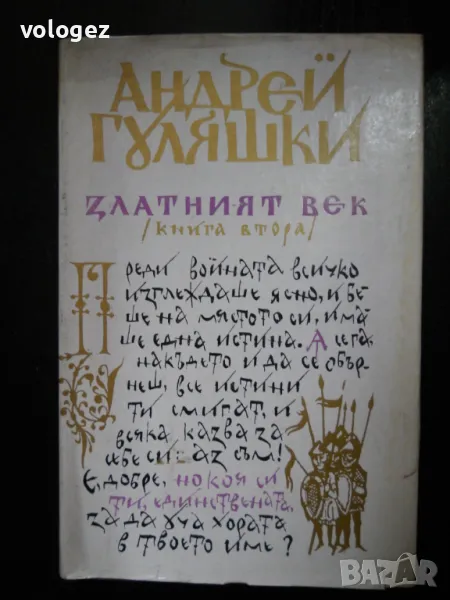 vologez
АНДРЕЙ
ГУЛЯШКИ
ЗЛАТНИЯТ ВЕК
/КНИГА ВТОРА/
Преди войната всичко
изглеждаше ясно, и бе-
ше на мястото си, има-
ше една истина. А сега
накъдето и да се обър-
неш, все истини
ти смигат, и
всяка казва за
себе си: аз съм!
Е, добре, но коя си
ти, единствената,
за да уча хората
в твоето име?
BAZAR
.bg